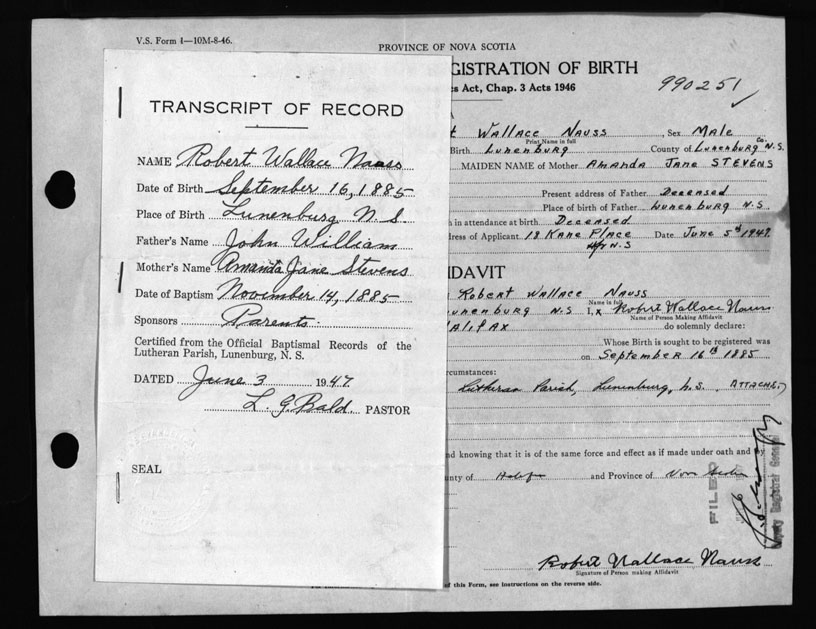 V.S. Form 1—10M-8-46.
PROVINCE OF NOVA SCOTIA
GISTRATION OF BIRTH
cs Act, Chap. 3 Acts 1946
990251
TRANSCRIPT OF RECORD
NAME Robert Wallace Nauss
Date of Birth September 16, 1885
Place of Birth Lunenburg N. S
Father's Name John William
Mother's Name Amanda Jane Stevens
Date of Baptism November 14, 1885
Sponsors Parents.
Certified from the Official Baptismal Records of the
Lutheran Parish, Lunenburg, N. S.
DATED June 3 1947
L. G. Bald. PASTOR
SEAL
t Wallace Nauss, Sex Male
Print Name in full
Birth Lunenburg County of Lunenburg Co. N.S.
MAIDEN NAME of Mother Amanda Jane STEVENS
Present address of Father Deceased
Place of birth of Father Lunenburg N.S.
h in attendance at birth Deceased
dress of Applicant 18 Kane Place Date June 5th 1947
Hfx N.S
FIDAVIT
Robert Wallace Nauss
Name in full
unenburg N.S I, x Robert Wallace Nauss
Name of Person Making Affidavit
ALIFAX do solemnly declare:
Whose Birth is sought to be registered was
on September 16th 1885
rcumstances:
Lutheran Parish, Lunenburg, N.S. ATTACHED
nd knowing that it is of the same force and effect as if made under oath and by
unty of Halifax and Province of Nova Scotia
FILED
Deputy Registrar General
Robert Wallace Nauss
Signature of Person making Affidavit
of this Form, see instructions on the reverse side.